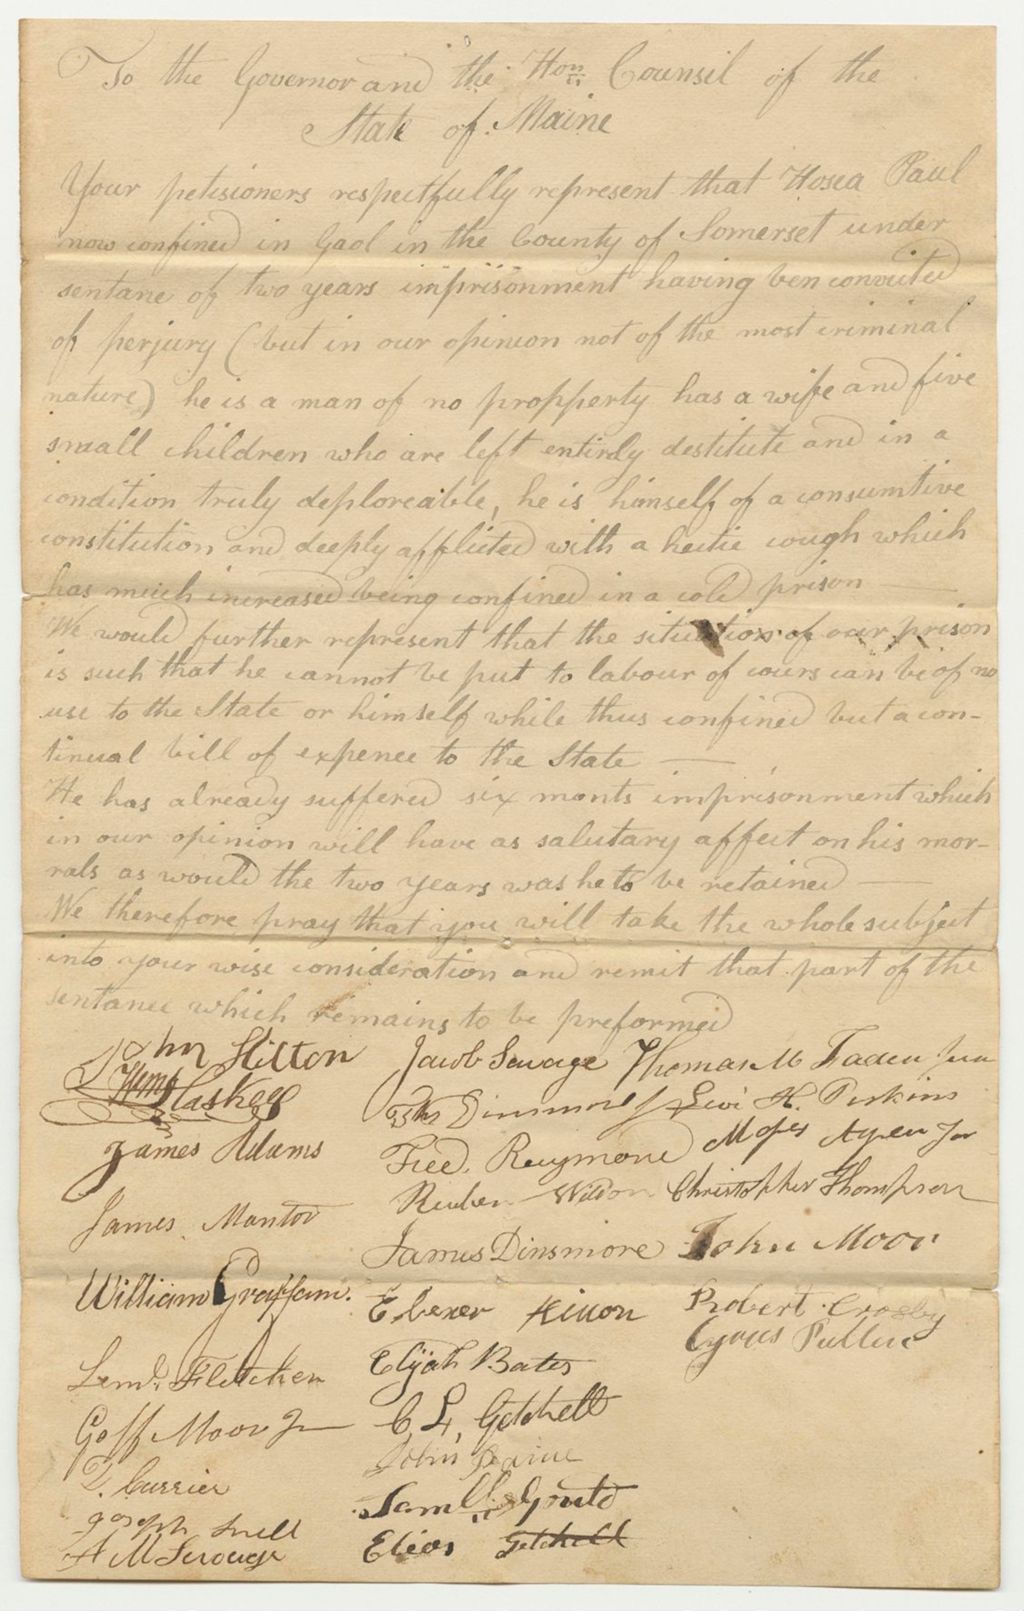 To the Governor and the Hon Counsil of the
State of Maine
Your petisioners respectfully represent that Hosea Paul
now confined in Gaol in the County of Somerset under
sentane of two years imprisonment having ben convicted
of perjury (but in our opinion not of the most criminal
nature) he is a man of no propperty has a wife and five
small children who are left entirely destitute and in a
condition truly deploreable, he is himself of a consumtive
constitution and deeply afflicted with a hectic cough which
has much increased being confined in a cold prison
We would further represent that the situation of our prison
is such that he cannot be put to labour of cours can be of no
use to the State or himself while thus confined but a con-
tinual bill of expence to the State
He has already suffered six monts imprisonment which
in our opinion will have as salutary affect on his mor-
rals as would the two years was he to be retained
We therefore pray that you will take the whole subject
into your wise consideration and remit that part of the
sentance which remains to be preformed
John Hilton Jacob Savage Thomas M Faden Jun
Wm Haskell Dinsmore Levi H. Perkins
James Adams Fred. Raymond Moses Ayer Jor
James Mantor Reuben Wilson Christopher Thompson
William Graffam. James Dinsmore John Moor
Lem. Fletcher Ebenezer Robert Crosby
Goff Moor Jn Elijah Bates Cyrus Pullen
T. Currier C L, Getchell
Joseph Snell John
A M Sam Gould
Elias Getchell